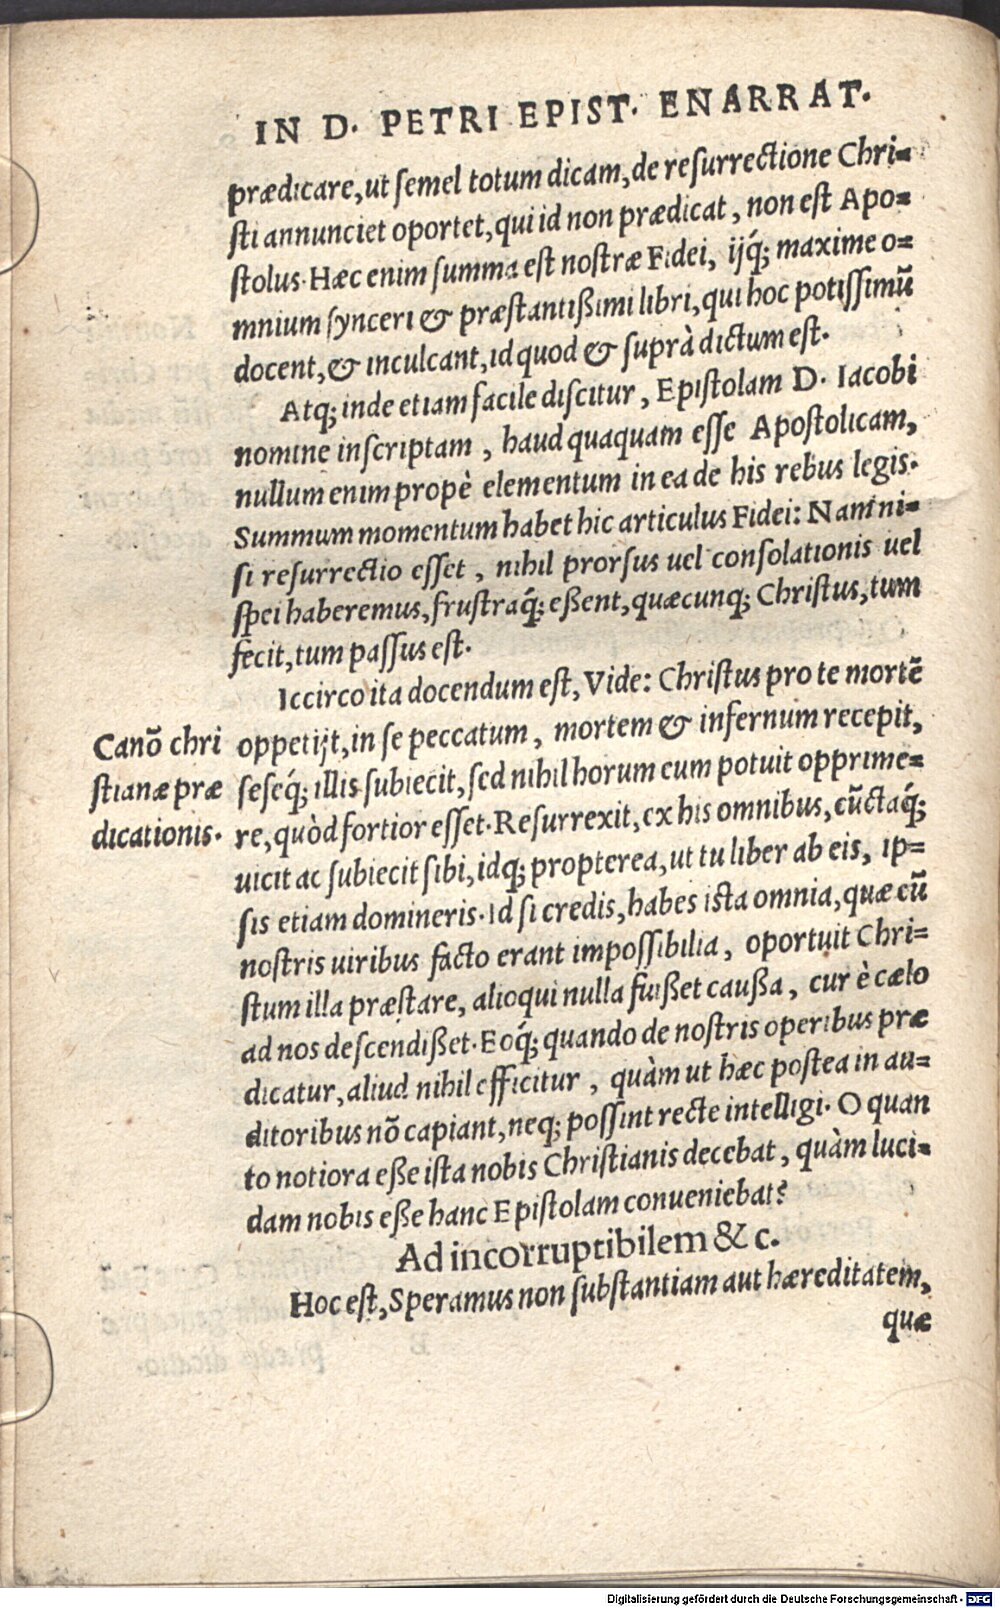 IN D. PETRI EPIST. ENARRAT.
prædicare, ut ſemel totum dicam, de reſurrectione Chri-
ſti annunciet oportet, qui id non prædicat, non eſt Apo-
ſtolus. Hæc enim ſumma eſt noſtræ Fidei, ijq́; maxime o-
mnium ſynceri & præſtantißimi libri, qui hoc potiſſimũ
docent, & inculcant, id quod & ſuprà dictum eſt.
Atq; inde etiam facile diſcitur, Epiſtolam D. Iacobi
nomine inſcriptam, haud quaquam eſſe Apoſtolicam,
nullum enim propè elementum in ea de his rebus legis.
Summum momentum habet hic articulus Fidei: Nam ni-
ſi reſurrectio eſſet, nihil prorſus uel conſolationis uel
ſpei haberemus, fruſtraq́; eßent, quæcunq; Chriſtus, tum
fecit, tum paſſus eſt.
Iccirco ita docendum eſt, Vide: Chriſtus pro te mortẽ
Canõ chri
ſtianæ præ
dicationis.
oppetijt, in ſe peccatum, mortem & infernum recepit,
ſeſeq́; illis ſubiecit, ſed nihil horum eum potuit opprime-
re, quòd fortior eſſet. Reſurrexit, ex his omnibus, cũctaq́;
uicit ac ſubiecit ſibi, idq; propterea, ut tu liber ab eis, ip-
ſis etiam domineris. Id ſi credis, habes iſta omnia, quæ cũ
noſtris uiribus facto erant impoſſibilia, oportuit Chri-
ſtum illa præſtare, alioqui nulla fuißet cauſſa, cur è cælo
ad nos deſcendißet. Eoq́; quando de noſtris operibus præ
dicatur, aliud nihil efficitur, quàm ut hæc poſtea in au-
ditoribus nõ capiant, neq; poſſint recte intelligi. O quan
to notiora eße iſta nobis Chriſtianis decebat, quàm luci-
dam nobis eße hanc Epiſtolam conueniebat?
Ad incorruptibilem &c.
Hoc eſt, Speramus non ſubſtantiam aut hæreditatem,
quæ
Digitalisierung gefördert durch die Deutsche Forschungsgemeinschaft - DFG